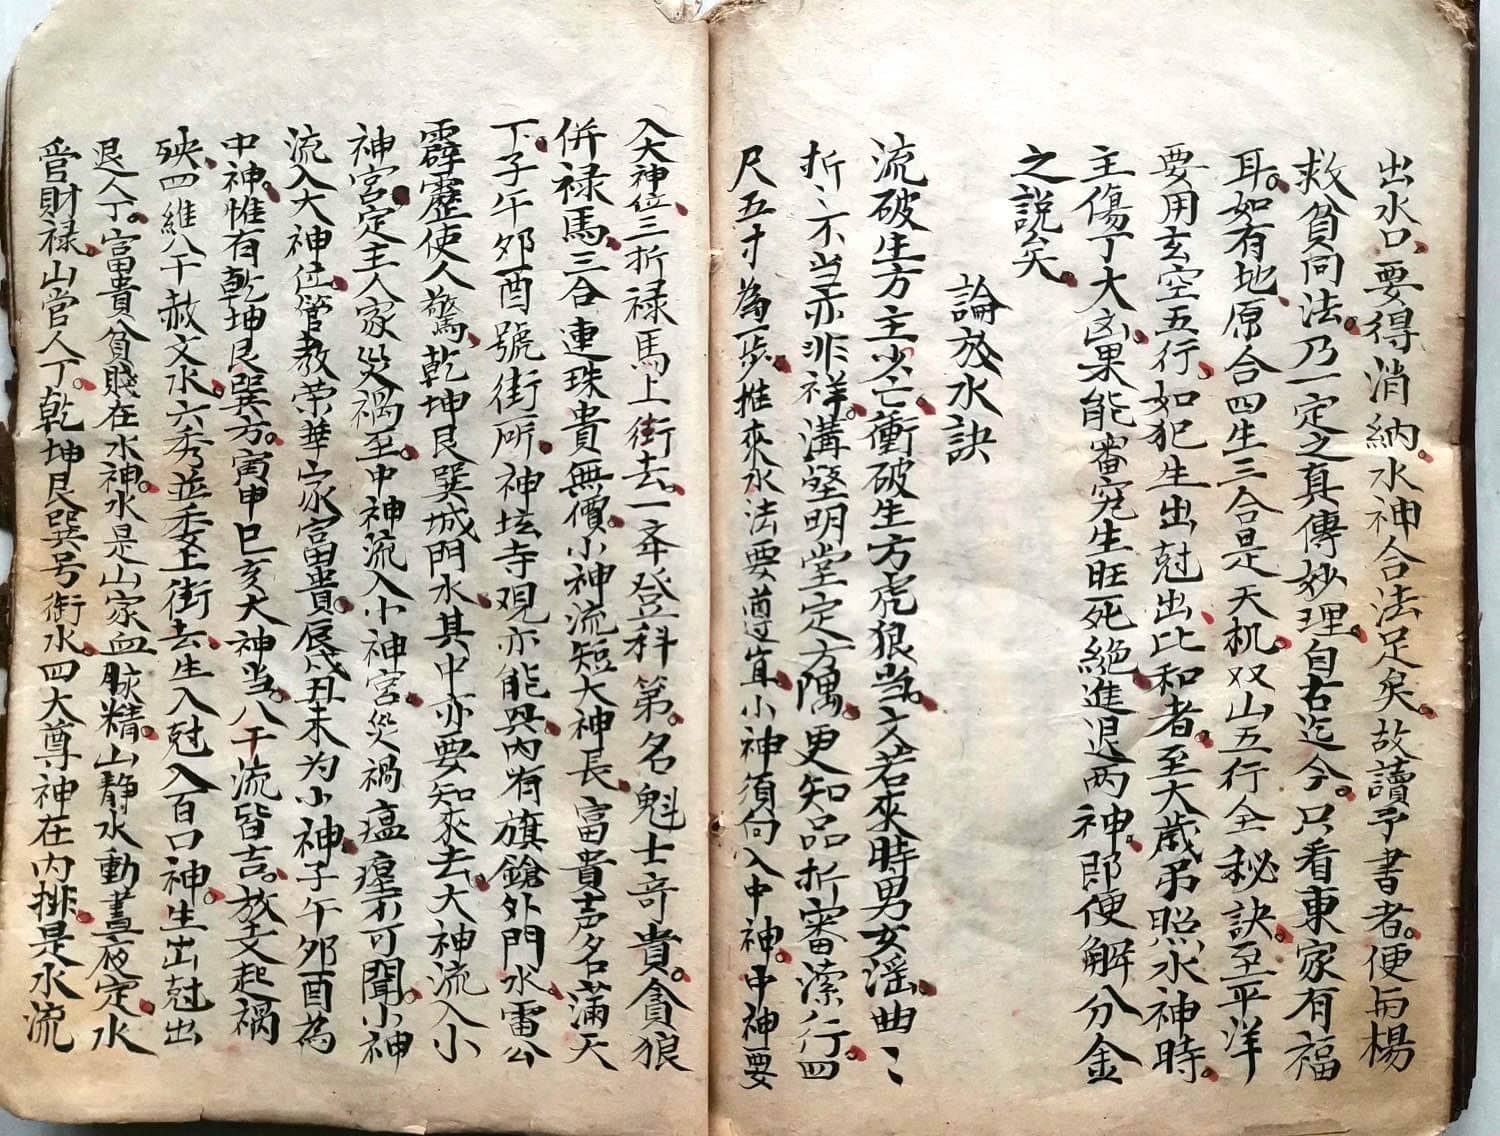 出水口要得消納水神合法足矣故讀予書者便与楊
救貧同法乃一定之真傳妙理自古迄今只看東家有福
耳如有地原合四生三合是天机双山五行全秘訣至平洋
要用玄空五行如犯生出尅出比和者至大歲吊照水神時
主傷丁大凶果能審究生旺死絶進退两神即便解分金
之說矣
論放水訣
流破生方主少亡衝破生方虎狼当文若來時男女滛曲〻
折〻不当亦非祥溝壑明堂定方隅更知品折審潆行四
尺五寸為一步推來水法要遵宜小神須向入中神中神要
入大神位三折禄馬上街去一举登科第名魁士奇貴貪狼
併禄馬三合連珠貴無價小神流短大神長富貴声名滿天
下子午夘酉號街所神坛寺观亦能具内有旗鎗外門水雷公
霹靂使人驚乾坤艮巽城門水其中亦要知來去大神流入小
神宮定主人家災禍至中神流入小神宮災禍瘟𤺺不可聞小神
流入大神位管教荣華家富貴辰戌丑未为小神子午夘酉為
中神惟有乾坤艮巽方寅申巳亥大神当八干流皆吉放支起禍
殃四維八干赦文水六秀並委上街去生入尅入百口神生出尅出
退人丁富貴貧賤在水神水是山家血脉精山静水動晝夜定水
管財禄山管人丁乾坤艮巽号衔水四大尊神在内排是水流